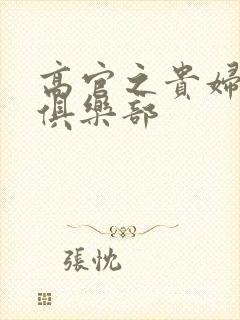 高官之貴婦
俱樂部
張忱